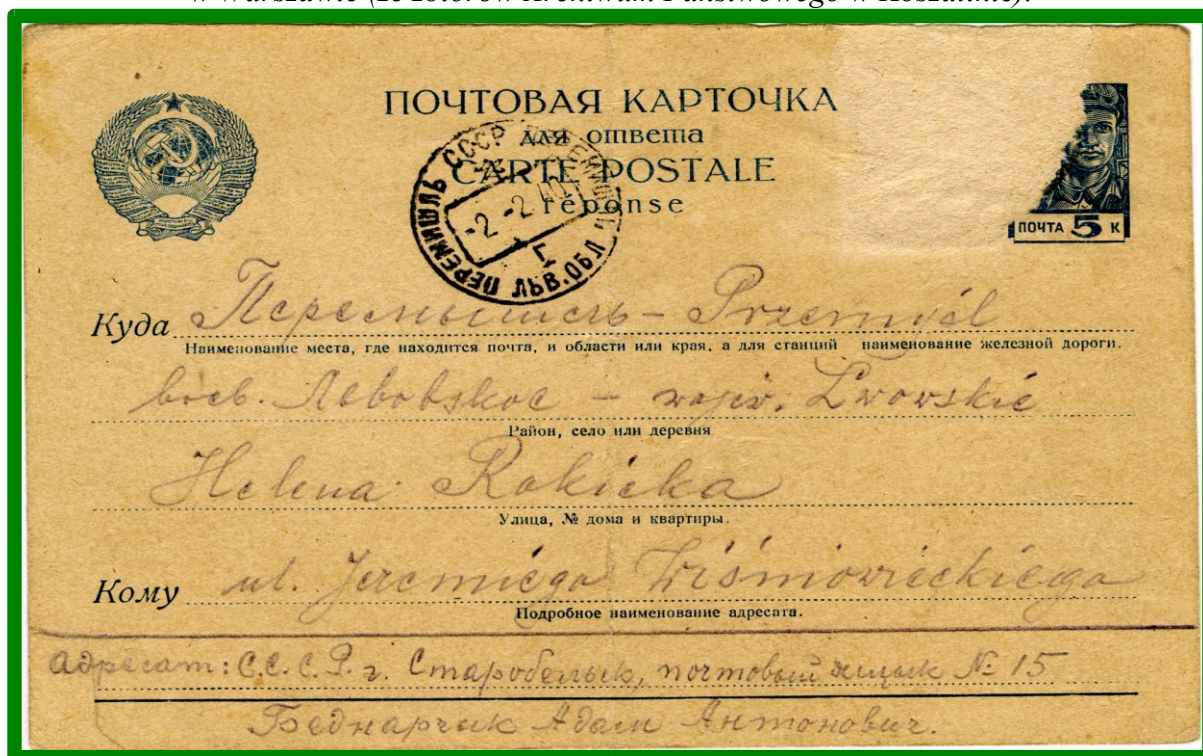 w Warszawie (ze zbiorów Archiwum Państwowego w Koszalinie).
ПОЧТОВАЯ КАРТОЧКА
для ответа
CARTE POSTALE
réponse
СССР
ПЕРЕМИШЛЬ ЛЬВ. ОБЛ
-2 -2 40
ПОЧТА 5 К
Куда Перемышель – Przemyśl
Наименование места, где находится почта, и области или края, а для станций наименование железной дороги.
воев. Львовское – wojew. Lwowskie
Район, село или деревня
Helena Rokicka
Улица, № дома и квартиры.
Кому ul. Jeremiego Wiśniowieckiego
Подробное наименование адресата.
Адресат: С.С.С.Р. г. Старобельск, почтовый ящык № 15
Беднарчик Адам Антонович.